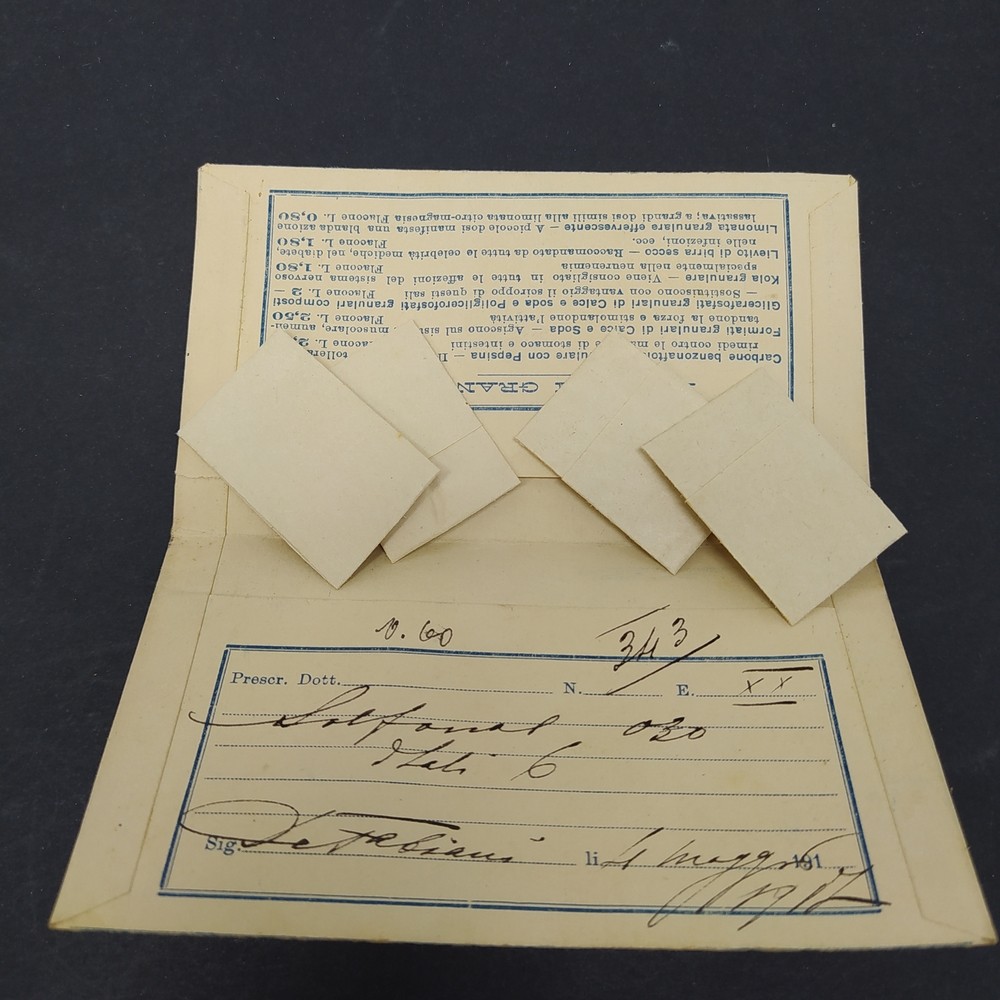 PRODOTTI GRAN
Carbone benzonaftolo granulare con Pepsina — Il
rimedi contro le ma di stomaco e intestini Flacone L. 2,
Formiati granulari di Calce e Soda — Agiscono sul sis muscolare, aumen-
tandone la forza e stimolandone l'attività Flacone L. 2,50
Glicerafosfati granulari di Calce e soda e Poliglicerofosfati granulari composti
— Sostituiscono con vantaggio il sciroppo di questi sali Flacone L. 2 —
Kola granulare — Viene consigliato in tutte le affezioni del sistema nervoso
specialmente nella neurenuria Flacone L. 1,80
Lievito di birra secco — Raccomandato da tutte le celebrità mediche, nel diabete,
nelle infezioni, ecc. Flacone L. 1,80
Limonata granulare effervescente — A piccole dosi manifesta una blanda azione
lassativa; a grandi dosi simili alla limonata citro-magnesia Flacone L. 0,80
0.60 343
Prescr. Dott. N. E. XX
Solfonal 030
6
Sig. De Fabiani li 4 maggio 191
1917